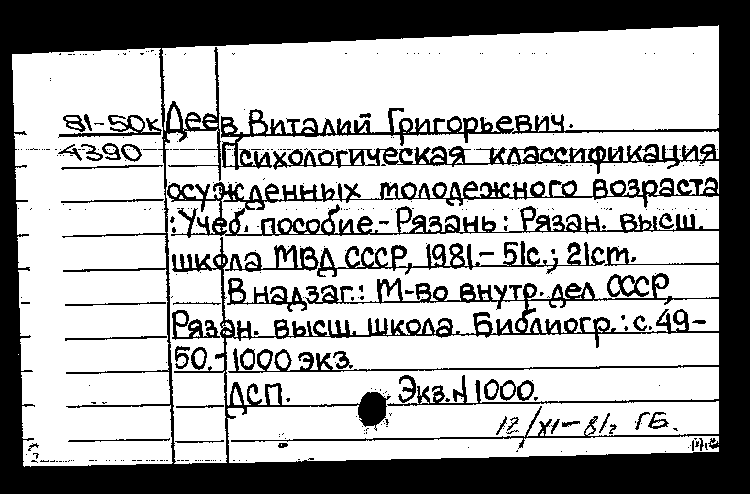 81-50к Деев, Виталий Григорьевич.
4390 Психологическая классификация
осужденных молодежного возраста
: Учеб. пособие.- Рязань : Рязан. высш.
школа МВД СССР, 1981.- 51с.; 21ст.
В надзаг.: М-во внутр. дел СССР,
Рязан. высш. школа. Библиогр.: с. 49-
50.- 1000 экз.
ДСП. Экз. N 1000.
12/XI-81г ГБ.